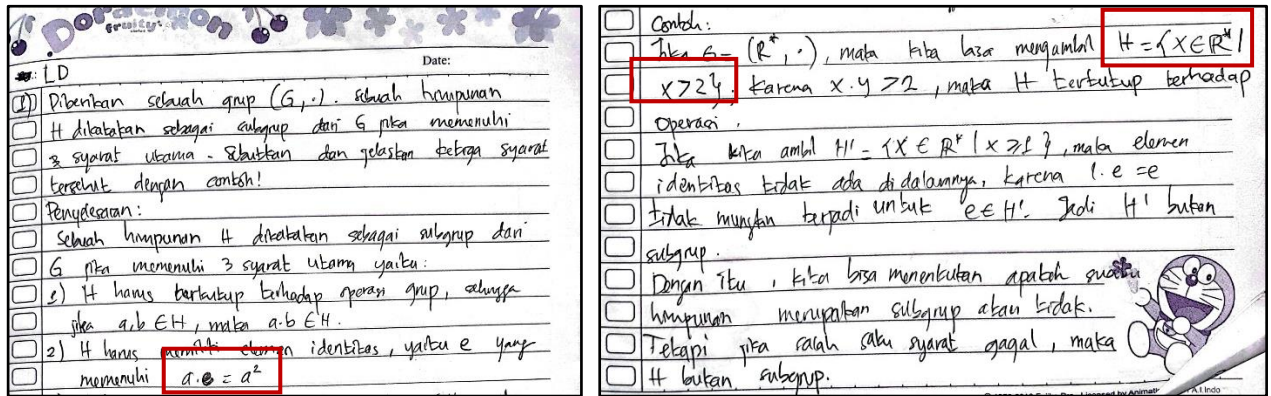 Doraemon
fruity
Date:
LD
1) Diberikan sebuah grup (G, ·). Sebuah himpunan
H dikatakan sebagai subgrup dari G jika memenuhi
3 syarat utama. Sebutkan dan jelaskan ketiga syarat
tersebut dengan contoh!
Penyelesaian:
Sebuah himpunan H dikatakan sebagai subgrup dari
G jika memenuhi 3 syarat utama yaitu:
1) H harus tertutup terhadap operasi grup, sehingga
jika a,b ∈ H, maka a·b ∈ H.
2) H harus memiliki elemen identitas, yaitu e yang
memenuhi a·e = a²
Contoh:
Jika G = (R*, ·), maka kita bisa mengambil H = {x ∈ R* |
x > 2}. Karena x·y > 2, maka H tertutup terhadap
operasi.
Jika kita ambil H' = {x ∈ R* | x > 1}, maka elemen
identitas tidak ada di dalamnya, karena 1·e = e
tidak mungkin terjadi untuk e ∈ H'. Jadi H' bukan
subgrup.
Dengan itu, kita bisa menentukan apakah suatu
himpunan merupakan subgrup atau tidak.
Tetapi jika salah satu syarat gagal, maka
H bukan subgrup.